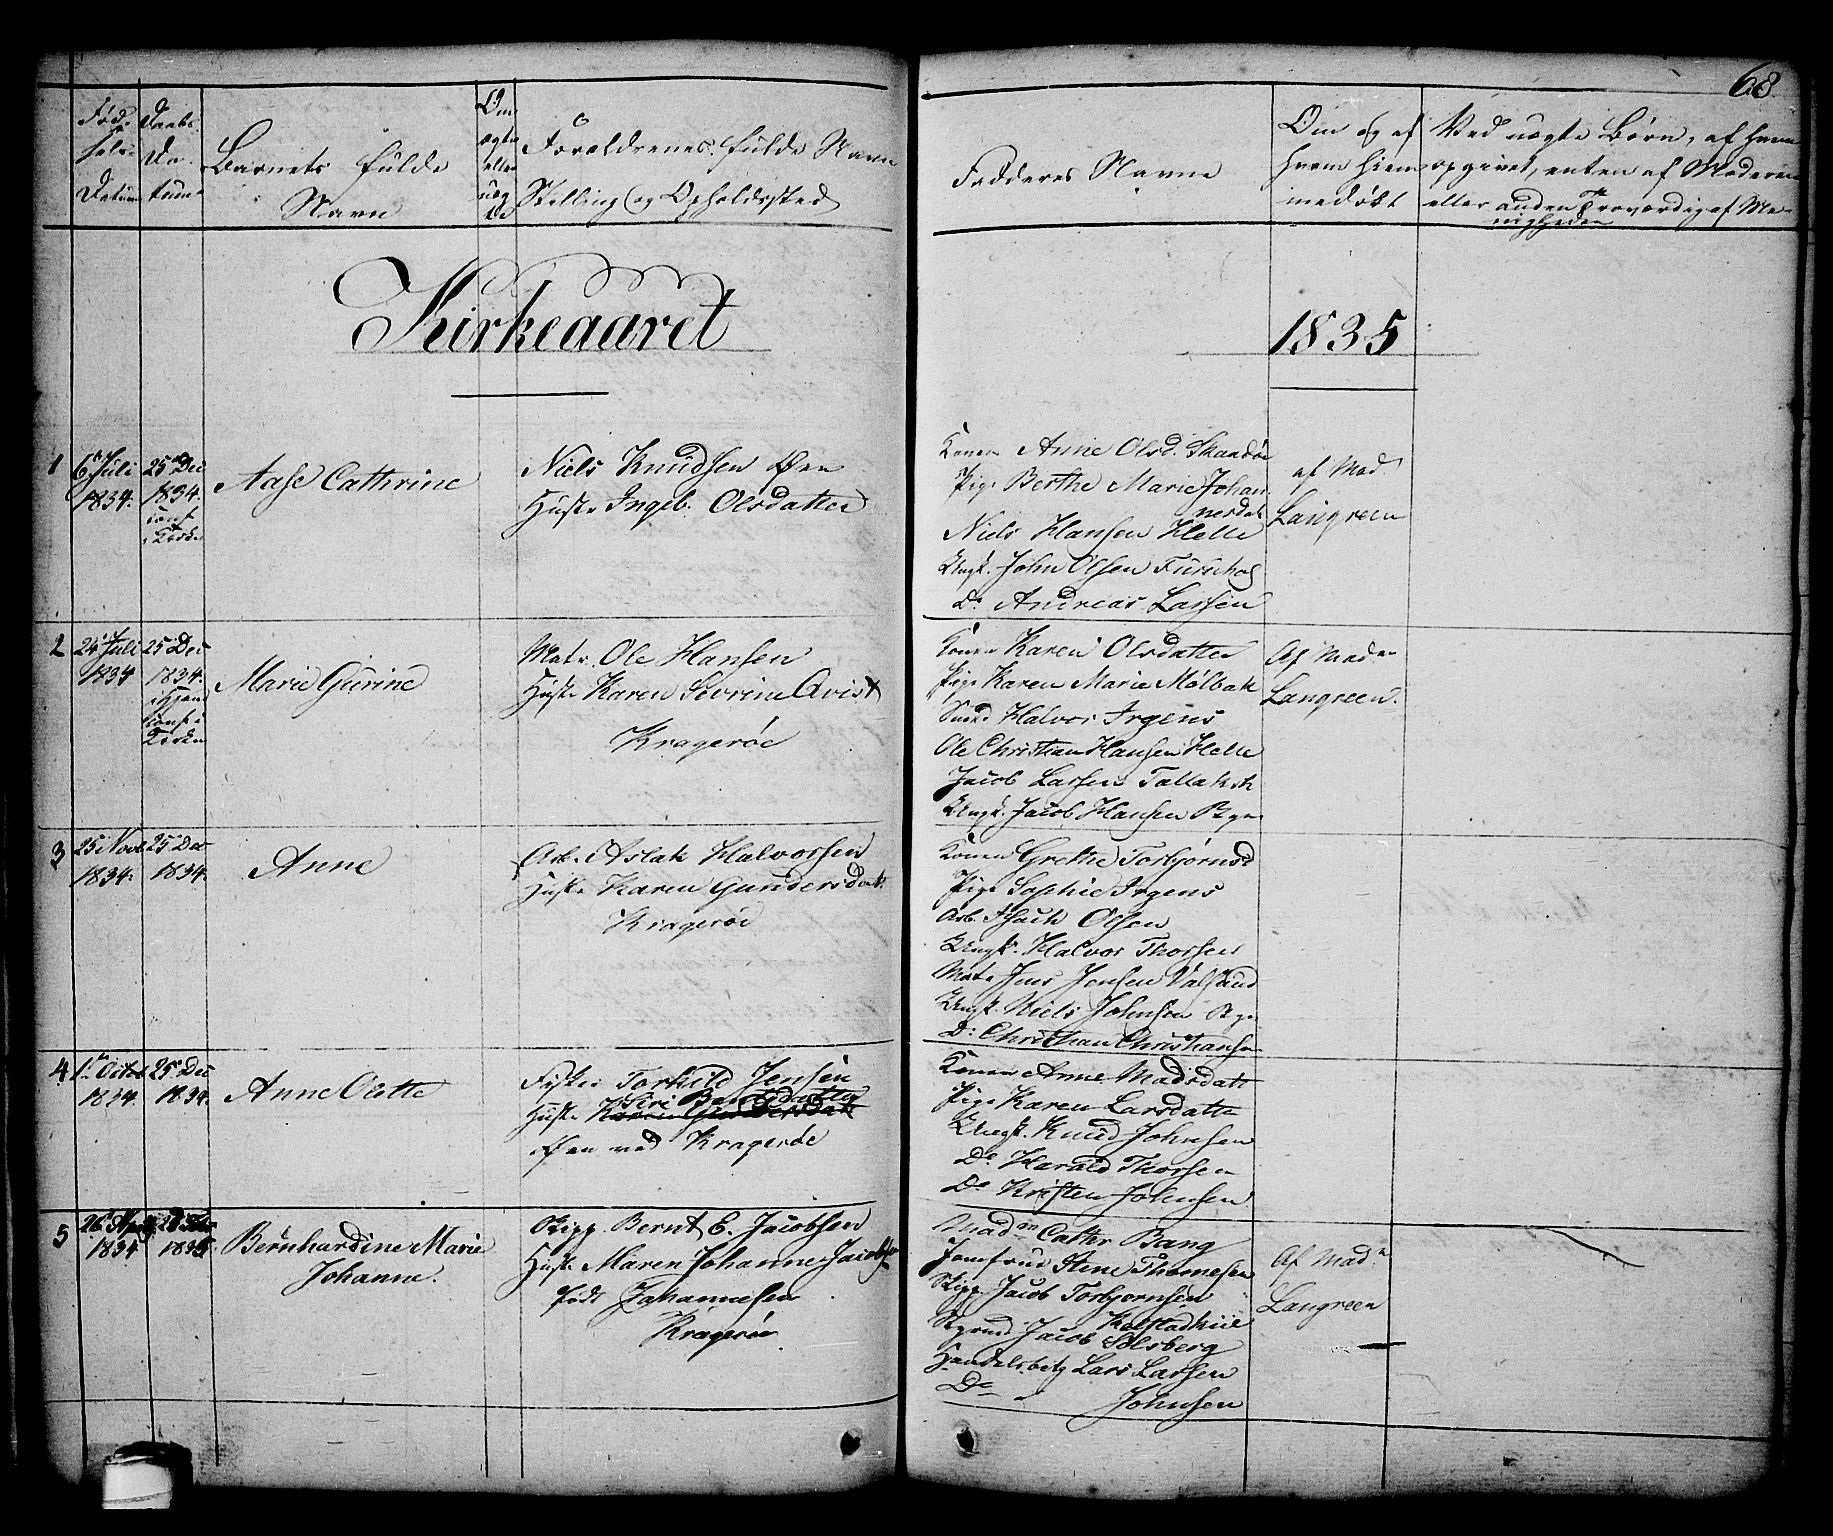 68.
Fød-
sels-
Datum
Daabs
Da-
tum
Barnets fulde
Navn
Om
ægte
eller
uæg
te
Forældrenes fulde Navn
Stilling og Opholdssted
Fadderes Navne
Om og af
hvem hiem
medøbt
Ved uægte Børn, af hvem
opgivet, enten af Moderen
eller anden Troværdig af Me-
nigheden
Kirkeaaret
1835
1
6 Juli
1834.
25 Dec
1834.
conf
i Kirke
Aase Cathrine
Niels Knudsen Øen
Hustr Ingeb. Olsdatter
Konen Anne Olsd. Skandøe
Pige Berthe Marie Johan
nesdat
Niels Hansen Helle
Ungk. John Olsen Furuholt
Do Andreas Larsen
af Mad
Langreen
2
24 Juli
1834
25 Dec
1834.
i Hjem
conf i
Kirken
Marie Gurine
Matr. Ole Hansen
Hustr Karen Sevrine Qvist
Kragerøe
Konen Karen Olsdatter
Pige Karen Marie Mølbak
Smed Halvor Irgens
Ole Christian Hansen Helle
Jacob Larsen Tallaksh
Ungk. Jacob Hansen Bye
Af Maden
Langreen.
3
25 Novb
1834.
25 Dec
1834.
Anne
Arb. Aslak Halvorsen
Hustr Karen Gundersdat.
Kragerøe
Konen Grethe Torbjørnsd
Pige Sophie Irgens
Arb. Isack Olsen
Ungk. Halvor Thorsen
Matr Jens Jensen Valsund
Ungk. Niels Johnsen Bye
Do Christian Christiansen
4
1 Octob
1834.
25 Dec
1834.
Anne Olette
Fisker Torkild Jensen
Siri Bentsdatter
Hustr Karen Gundersdat
Øen ved Kragerøe
Konen Anne Madsdatt
Pige Karen Larsdatte
Ungk. Knud Johnsen
Do Harald Thorsen
Do Kristen Johnsen
5
26
1834
28
1835
Bernhardine Marie
Johanne.
Skipp Bernt E. Jacobsen
Hustr Maren Johanne Jacobsen
født Johannesen
Kragerøe
Madm Cathr Bang
Jomfrue Stene Thomesen
Skipp. Jacob Torbjornsen
Kalstadkiil
Jacob Solsberg
Handelsbetj Lars Larsen
Do Johnsen
Af Mad.
Langreen